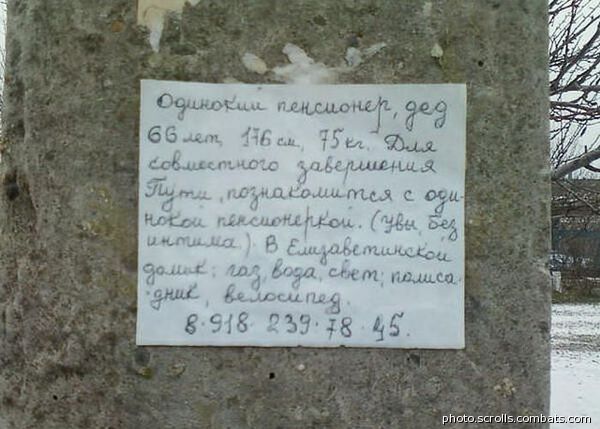 Одинокий пенсионер, дед
66 лет, 176 см, 75 кг. Для
совместного завершения
Пути, познакомится с оди-
нокой пенсионеркой. (Увы, без
интима.) В Елизаветинской
домик: газ, вода, свет; палиса-
дник, велосипед.
8·918·239·78·45.
photo.scrolls.combats.com